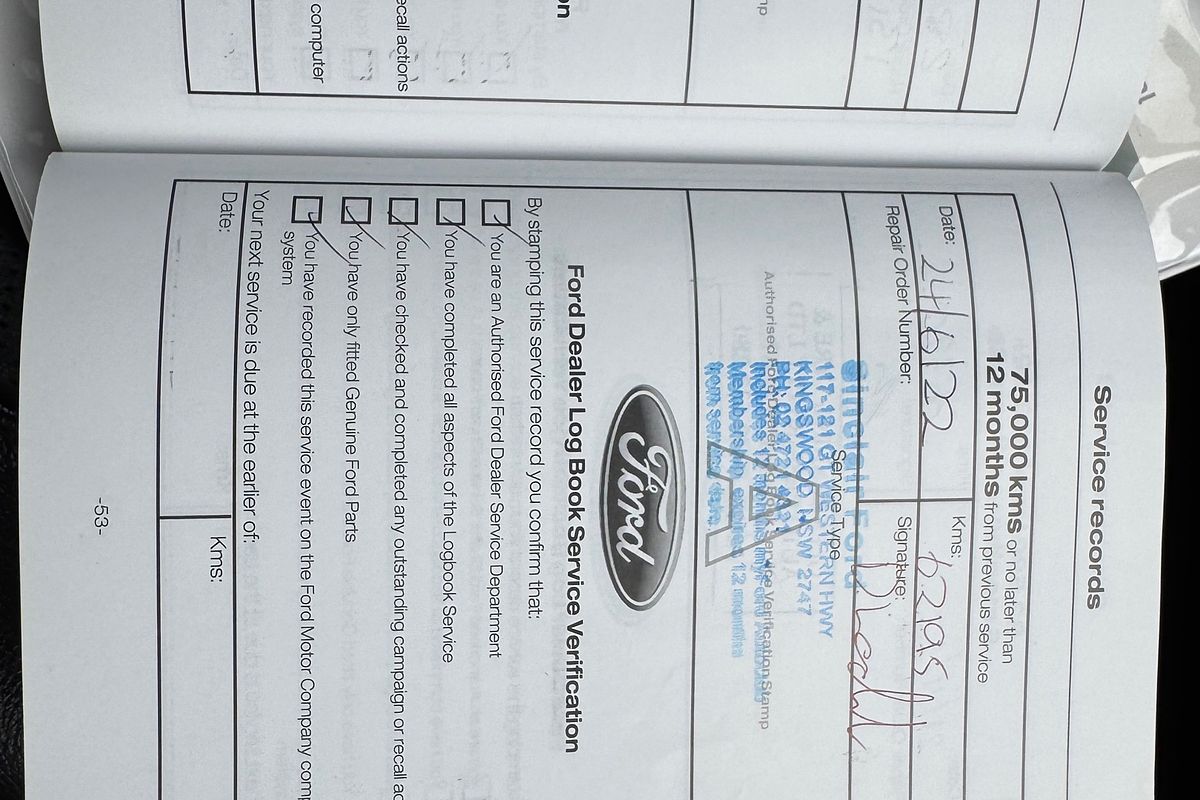 mp
on
ecall actions
computer
Service records
75,000 kms or no later than
12 months from previous service
Date: 24/6/22
Kms: 62195
Repair Order Number:
Signature:
Service Type
A
Sinclair Ford
117-121 GT WESTERN HWY
KINGSWOOD, NSW 2747
PH: 02
Authorised Ford Dealer Log Book Service Verification Stamp
Includes 12 months
Membership, expires 12 months
from service date.
Ford
Ford Dealer Log Book Service Verification
By stamping this service record you confirm that:
You are an Authorised Ford Dealer Service Department
You have completed all aspects of the Logbook Service
You have checked and completed any outstanding campaign or recall ac
You have only fitted Genuine Ford Parts
You have recorded this service event on the Ford Motor Company comp
system
Your next service is due at the earlier of:
Date:
Kms:
-53-